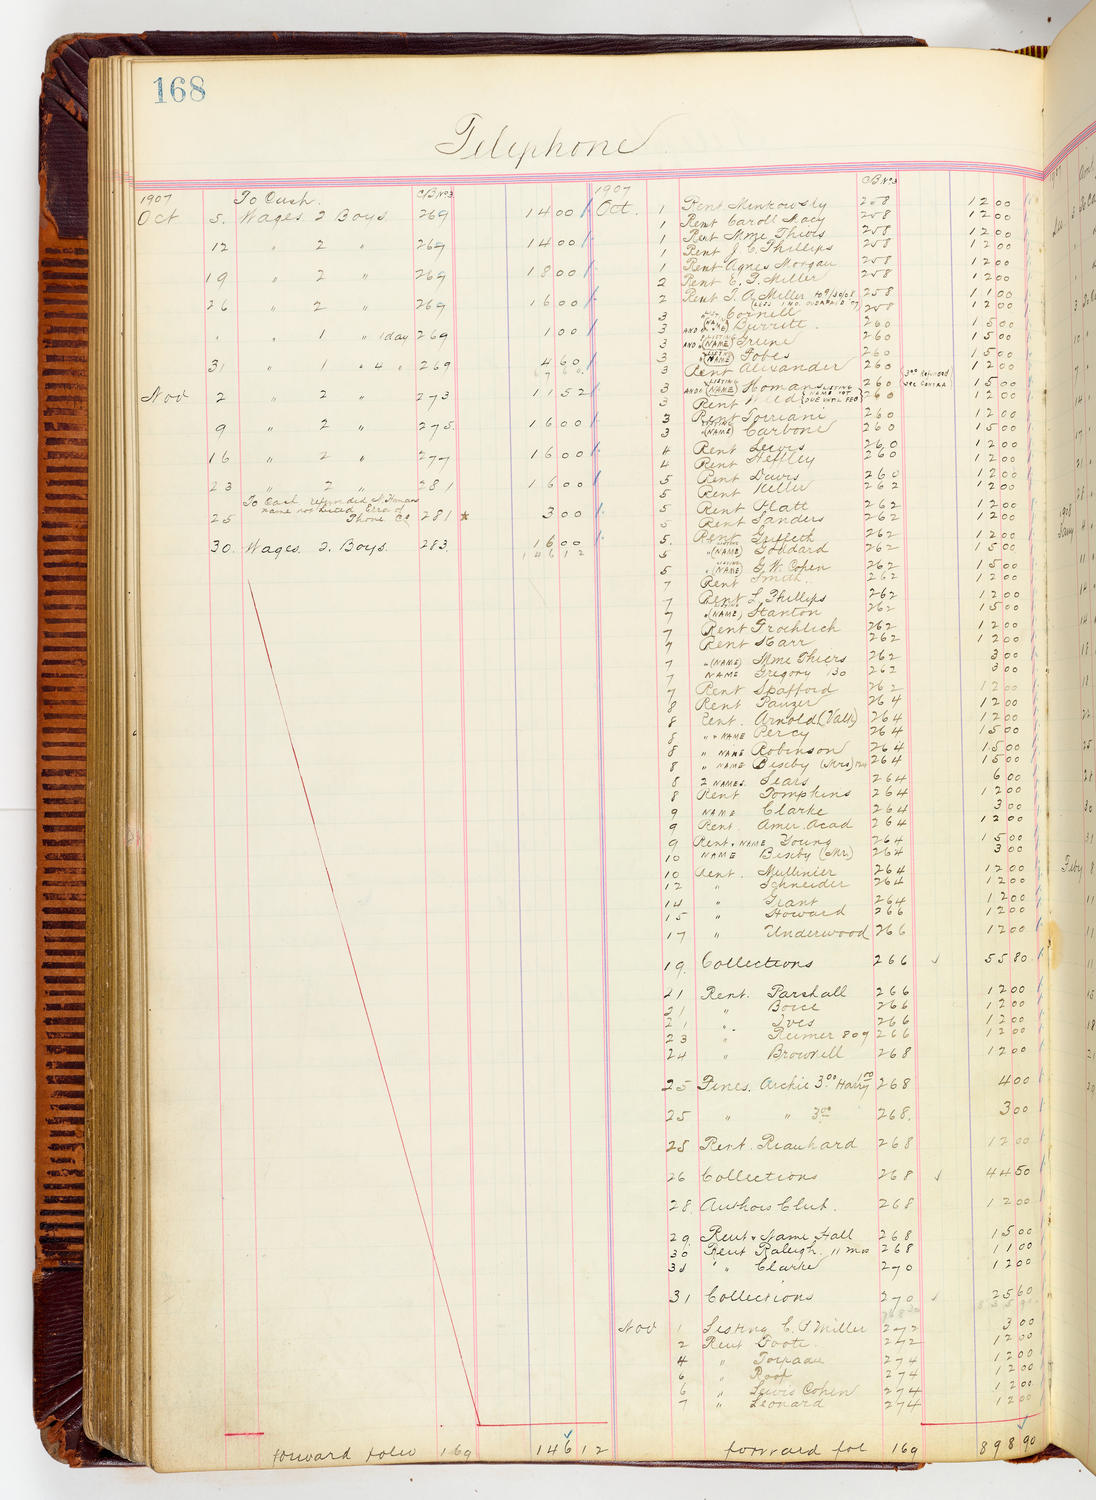 168
Telephone
1907 To Cash. C/B No 3
Oct 5. Wages 2 Boys 269 14 00
12 " 2 " 269 14 00
19 " 2 " 269 18 00
26 " 2 " 269 16 00
" " 1 " 1 day 269 1 00
31 " 1 " 4 " 269 4 60
Nov 2 " 2 " 273 11 52
9 " 2 " 275 16 00
16 " 2 " 277 16 00
23 " 2 " 281 16 00
To Cash refunded N. Homans
name not listed Error of
25 Phone Co 281 3 00
30. Wages. 2. Boys. 283. 16 00
146 12
forward folio 169 146 12
1907 C/B No 3
Oct. 1 Rent Minkowsky 258 12 00
1 Rent Caroll Macy 258 12 00
1 Rent Mme Thiers 258 12 00
1 Rent J. C. Phillips 258 12 00
1 Rent Agnes Morgan 258 12 00
2 Rent E. J. Miller 258 12 00
2 Rent J. A. Miller to 9/30/08 258 11 00
3 Cornell 258 12 00
3 AND (NAME) Burritt 260 15 00
3 AND " LISTING (NAME) Greene 260 15 00
3 " LISTING (NAME) Fobes 260 15 00
3 Rent Alexander 260 12 00
3 AND LISTING (NAME) Homans LISTING NAME NOT DUE UNTIL FEB 260 3 00 Refunded see contra 15 00
3 Rent Weed 260 12 00
3 Rent Torriani 260 12 00
3 LISTING (NAME) Carbone 260 15 00
4 Rent Lewis 260 12 00
4 Rent Heffley 260 12 00
5 Rent Davis 260 12 00
5 Rent Keller 262 12 00
5 Rent Platt 262 12 00
5 Rent Sanders 262 12 00
5. Rent Griffeth 262 12 00
5 " LISTING (NAME) Goddard 262 15 00
5 " LISTING (NAME) G. W. Cohen 262 15 00
7 Rent Smith. 262 12 00
7 Rent L. Phillips 262 12 00
7 " LISTING (NAME) Stanton 262 15 00
7 Rent Froehlich 262 12 00
7 Rent Starr 262 12 00
7 " (NAME) Mme Thiers 262 3 00
7 NAME Gregory 130 262 3 00
7 Rent Spafford 262 12 00
8 Rent Panzer 264 12 00
8 Rent. Arnold (Valk) 264 12 00
8 " + NAME Percy 264 15 00
8 " NAME Robinson 264 15 00
8 " NAME Bixby (Mrs) 264 15 00
8 2 NAMES. Sears 264 6 00
8 Rent Tompkins 264 12 00
9 NAME Clarke 264 3 00
9 Rent. Amer. Acad 264 12 00
9 Rent + NAME Young 264 15 00
10 NAME Bixby (Mr.) 264 3 00
10 Rent. Mullinier 264 12 00
12 " Schneider 264 12 00
14 " Grant 264 12 00
15 " Howard 266 12 00
17 " Underwood 266 12 00
19. Collections 266 55 80
21 Rent. Parshall 266 12 00
21 " Boice 266 12 00
21 " Ives 266 12 00
23 " Reimer 809 266 12 00
24 " Brownell 268 12 00
25 Fines. Archie 3 00 Harry 1 00 268 4 00
25 " " 3 00 268. 3 00
25 Rent. Reauhard 268 12 00
26 Collections 268 44 50
28. Authors Club. 268 12 00
29. Rent + Name Hall 268 15 00
30 Rent Raleigh. 11 mos 268 11 00
31 " " Clarke 270 12 00
31 Collections 270 25 60
Nov 1 Listing C. J. Miller 272 3 00
2 Rent Foote 272 12 00
4 " Torpadu 274 12 00
6 " Roof 274 12 00
6 " Lewis Cohen 274 12 00
7 " Leonard 274 12 00
forward fol 169 898 90